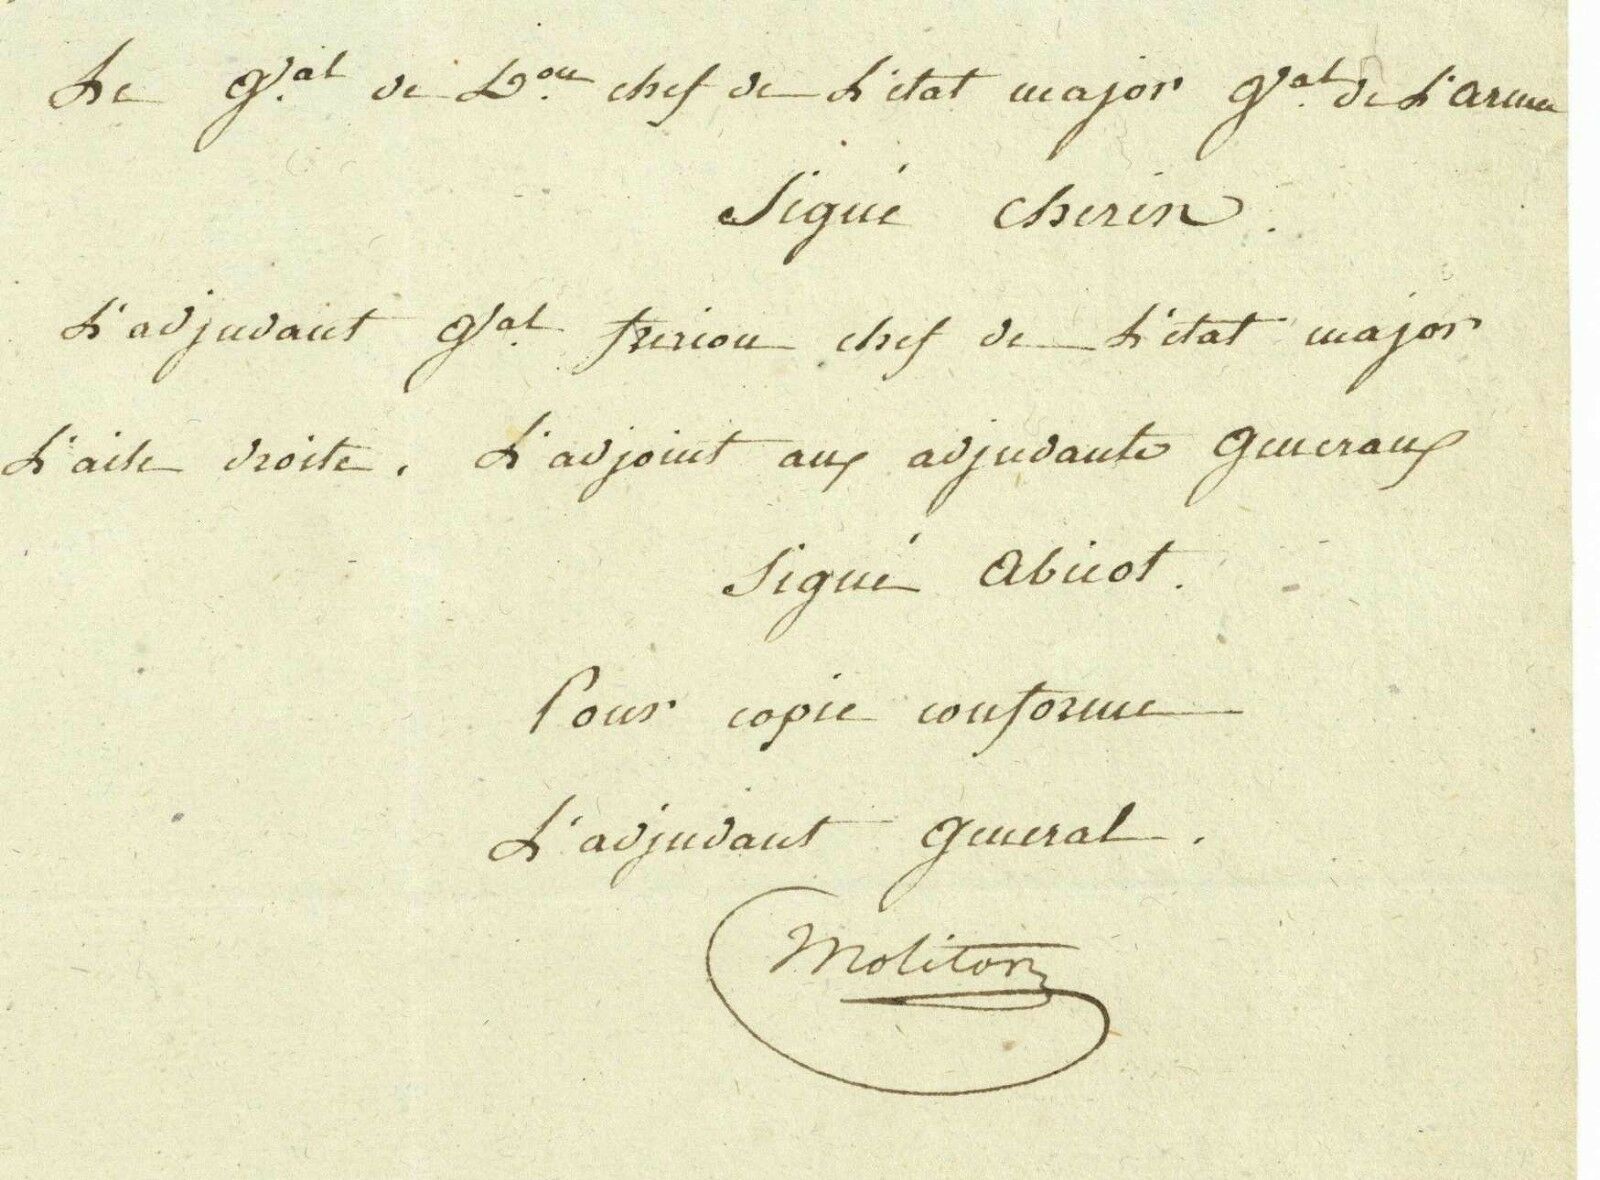 Le g.al de D.on chef de L'état major g.al de L'armée
Signé cherin.
L'adjudant g.al frerion chef de L'état major
L'aile droite. L'adjoint aux adjudants generaux
Signé abicot.
Pour copie conforme
L'adjudant general.
Molitor